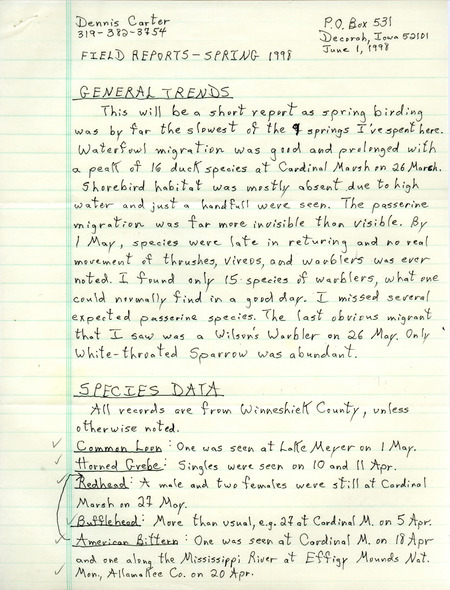 Dennis Carter
319-382-3754
P.O. Box 531
Decorah, Iowa 52101
June 1, 1998
FIELD REPORTS - SPRING 1998
GENERAL TRENDS
This will be a short report as spring birding
was by far the slowest of the 9 springs I've spent here.
Waterfowl migration was good and prolonged with
a peak of 16 duck species at Cardinal Marsh on 26 March.
Shorebird habitat was mostly absent due to high
water and just a handfull were seen. The passerine
migration was far more invisible than visible. By
1 May, species were late in returing and no real
movement of thrushes, vireos, and warblers was ever
noted. I found only 15 species of warblers, what one
could normally find in a good day. I missed several
expected passerine species. The last obvious migrant
that I saw was a Wilson's Warbler on 26 May. Only
White-throated Sparrow was abundant.
SPECIES DATA
All records are from Winneshiek County, unless
otherwise noted.
Common Loon: One was seen at Lake Meyer on 1 May.
Horned Grebe: Singles were seen on 10 and 11 Apr.
Redhead: A male and two females were still at Cardinal
Marsh on 27 May.
Bufflehead: More than usual, e.g. 27 at Cardinal M. on 5 Apr.
American Bittern: One was seen at Cardinal M. on 18 Apr
and one along the Mississippi River at Effigy Mounds Nat.
Mon., Allamakee Co. on 20 Apr.